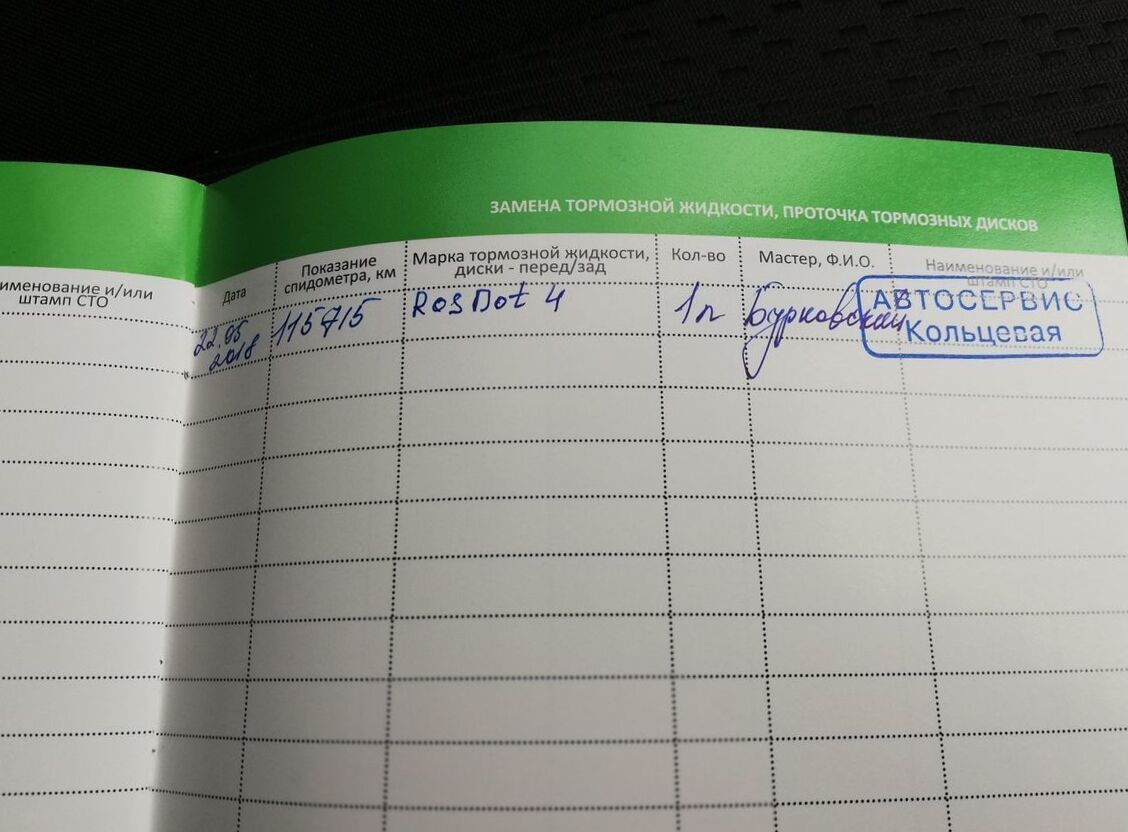 ЗАМЕНА ТОРМОЗНОЙ ЖИДКОСТИ, ПРОТОЧКА ТОРМОЗНЫХ ДИСКОВ
именование и/или
штамп СТО
Дата
Показание
спидометра, км
Марка тормозной жидкости,
диски - перед/зад
Кол-во
Мастер, Ф.И.О.
Наименование и/или
штамп СТО
22.05
2018
115715
RosDot 4
1л
Бурковский
АВТОСЕРВИС
Кольцевая